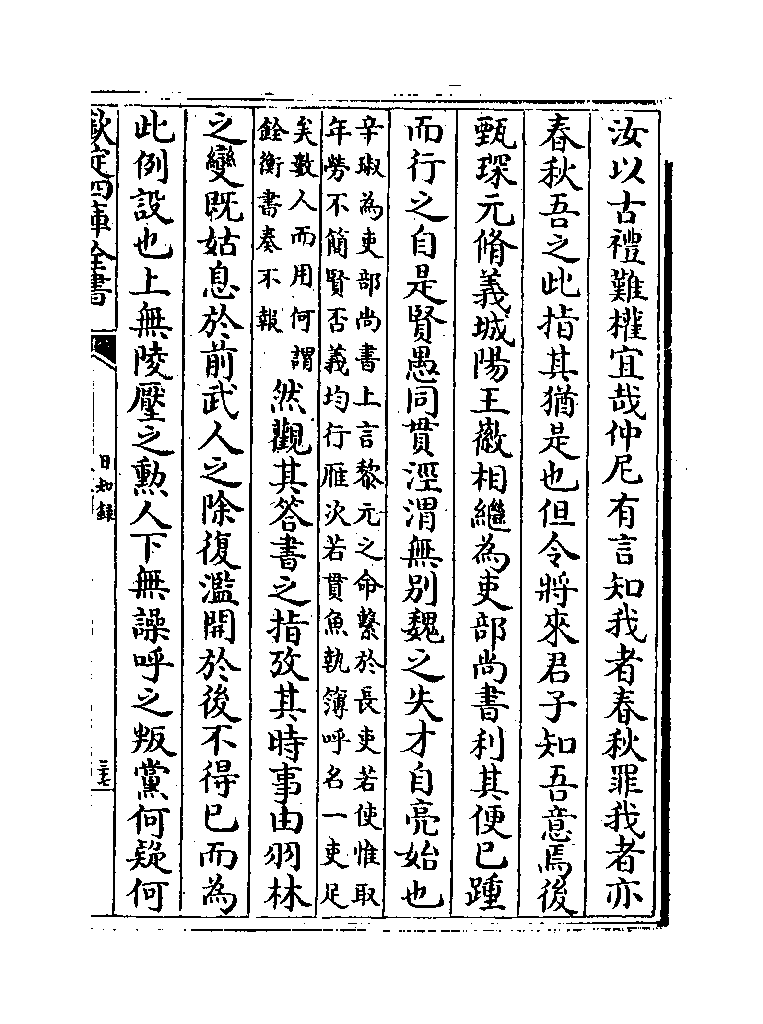 汝以古禮難權宜哉仲尼有言知我者春秋罪我者亦
春秋吾之此指其猶是也但令將來君子知吾意焉後
甄琛元脩義城陽王徽相繼為吏部尚書利其便已踵
而行之自是賢愚同貫涇渭無別魏之失才自亮始也
辛琡為吏部尚書上言黎元之命繫於長吏若使惟取
年勞不簡賢否義均行雁次若貫魚執簿呼名一吏足
矣數人而用何謂
銓衡書奏不報
然觀其答書之指攷其時事由羽林
之變既姑息於前武人之除復濫開於後不得已而為
此例設也上無陵壓之勲人下無譟呼之叛黨何疑何
欽定四庫全書
日知録
三七